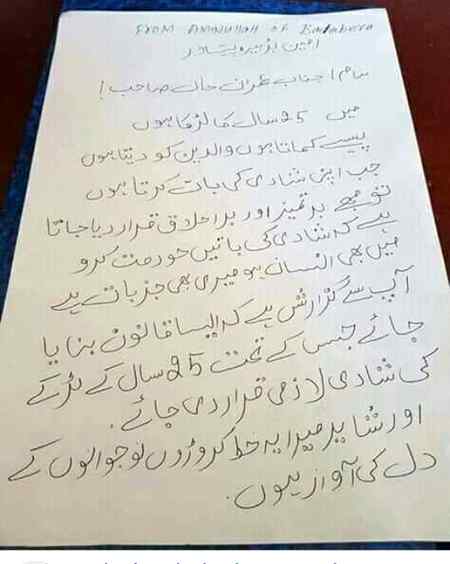 From Amanullah of Badabera
امین بڈبیرہ پشاور
بنام! جناب عمران خان صاحب!
میں 25 سال کا لڑکا ہوں
پیسے کماتا ہوں والدین کو دیتا ہوں
جب اپنی شادی کی بات کرتا ہوں
تو مجھے بدتمیز اور بداخلاق قرار دیا جاتا
ہے کہ شادی کی باتیں خود مت کرو
میں بھی انسان ہو میری بھی جزبات ہے
آپ سے گزارش ہے کہ ایسا قانون بنایا
جائے جس کے تحت 25 سال کے لڑکے
کی شادی لازمی قرار دی جائے.
اور شاید میرا یہ خط کروڑوں نوجوانوں کے
دل کی آواز ہوں.